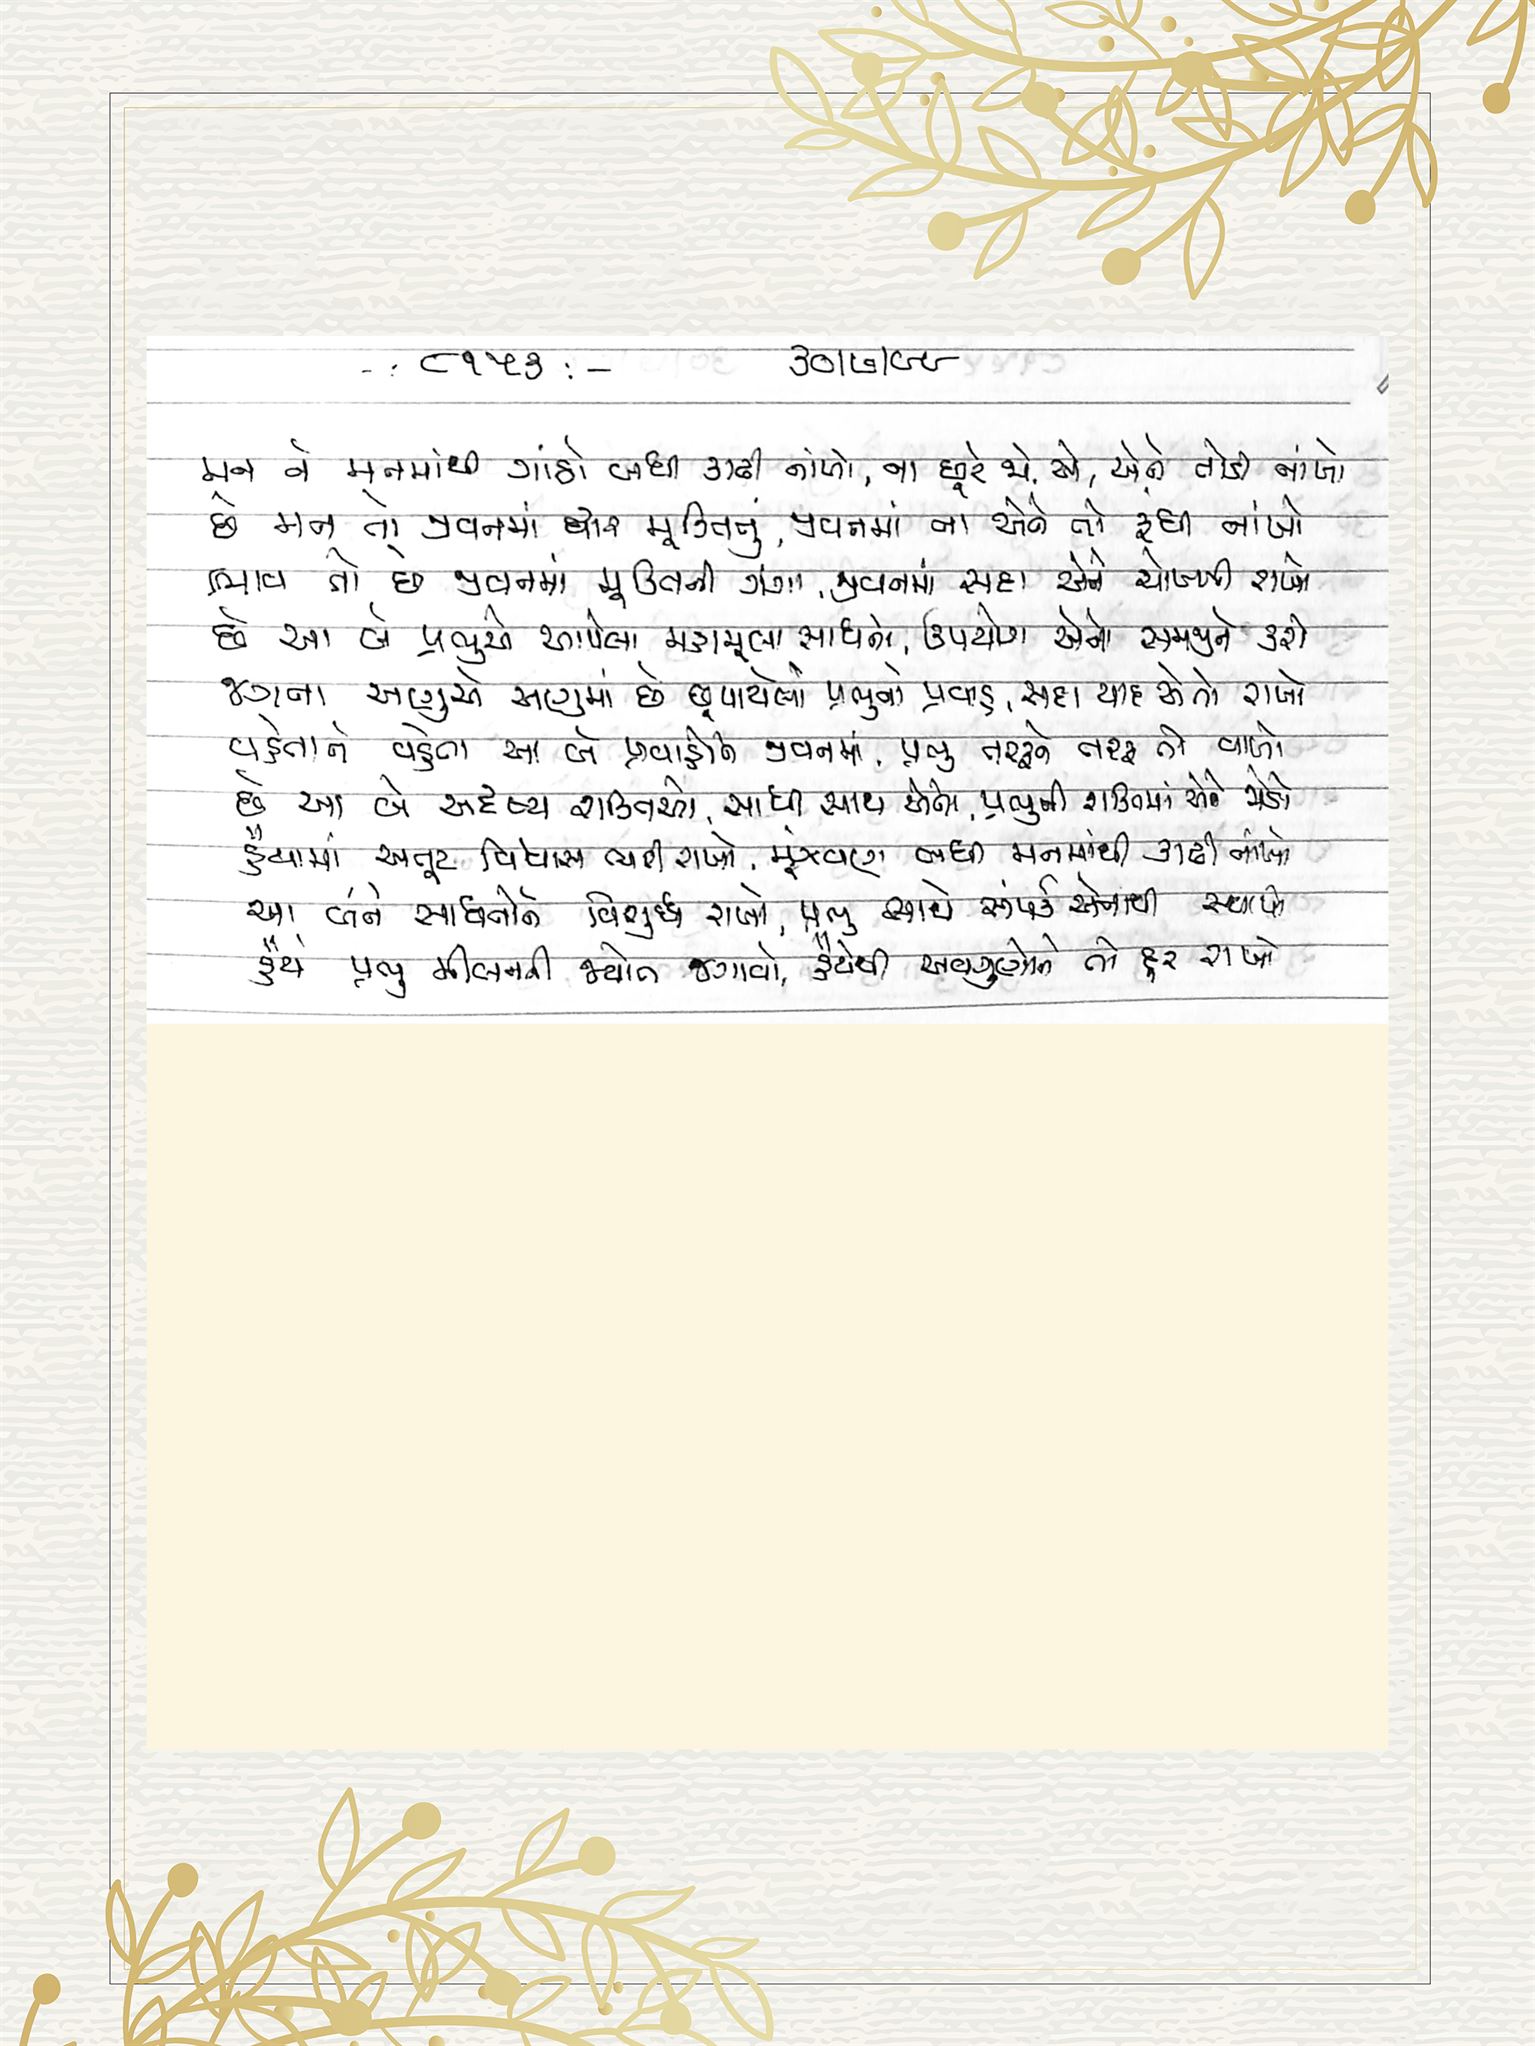 -: ૮૧૫૩ :- ૩૦/૭/૯૯
મન ને મનમાંથી ગાંઠો બધી કાઢી નાંખો, ના છૂટે જો એ, એને તોડી નાંખો
છે મન તો જીવનમાં દ્વાર મુક્તિનું, જીવનમાં ના એને તો રૂંધી નાંખો
ભાવ તો છે જીવનમાં મુક્તિની ગંગા, જીવનમાં સદા એને ચોખ્ખી રાખો
છે આ બે પ્રભુએ આપેલા મહામૂલા સાધનો, ઉપયોગ એનો સમજીને કરો
જગના અણુએ અણુમાં છે છૂપાયેલો પ્રભુનો પ્રવાહ, સદા યાદ એ તો રાખો
વહેતાને વહેતા આ બે પ્રવાહોને જીવનમાં, પ્રભુ તરફને તરફ તો વાળો
છે આ બે અદૃષ્ય શક્તિઓ, સાધી સાથ એનો, પ્રભુની શક્તિમાં એને જોડો
હૈયામાં અતૂટ વિશ્વાસ ભરી રાખો, મૂંઝવણ બધી મનમાંથી કાઢી નાંખો
આ બંને સાધનોને વિશુધ્ધ રાખો, પ્રભુ સાથે સંપર્ક એનાથી સ્થાપો
હૈયે પ્રભુ મીલનની જ્યોત જગાવો, હૈયેથી અવગુણોને તો દૂર રાખો